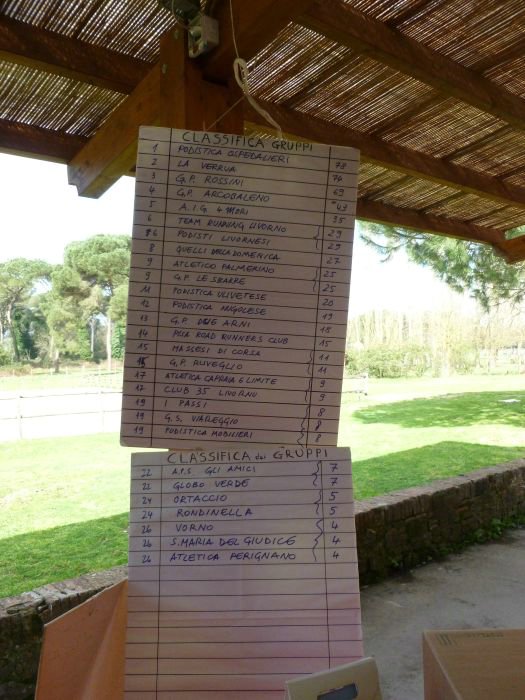 CLASSIFICA GRUPPI
1 PODISTICA OSPEDALIERI 78
2 LA VERRUA 74
3 G.P. ROSSINI 69
4 G.P. ARCOBALENO 43
5 A.I.G. 4 MORI 35
6 TEAM RUNNING LIVORNO 29
6 PODISTI LIVORNESI 29
8 QUELLI DELLA DOMENICA 27
9 ATLETICO PALMERINO 25
9 G.P. LE SBARRE 25
11 PODISTICA ULIVETESE 20
12 PODISTICA NAGOLESE 19
13 G.P. DUE ARNI 18
14 PISA ROAD RUNNERS CLUB 15
15 MASSESI DI CORSA 11
15 G.P. RUVEGLIO 11
17 ATLETICA CAPRAIA E LIMITE 9
17 CLUB 35 LIVORNO 9
19 I PASSI 8
19 G.S. VAREGGIO 8
19 PODISTICA MOBILIERI 8
CLASSIFICA dei GRUPPI
22 A.P.S GLI AMICI 7
22 GLOBO VERDE 7
24 ORTACCIO 5
24 RONDINELLA 5
26 VORNO 4
26 S. MARIA DEL GIUDICE 4
26 ATLETICA PERIGNANO 4